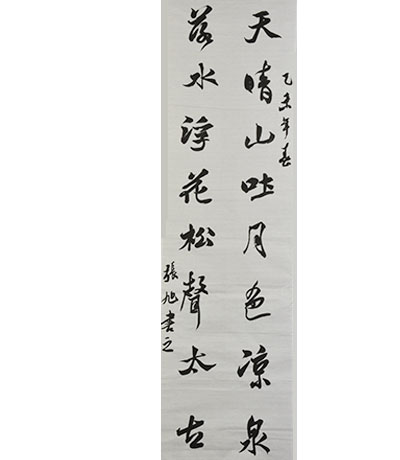 乙未年春
天晴山吐月色凉泉
落水浮花松聲太古
張旭書之